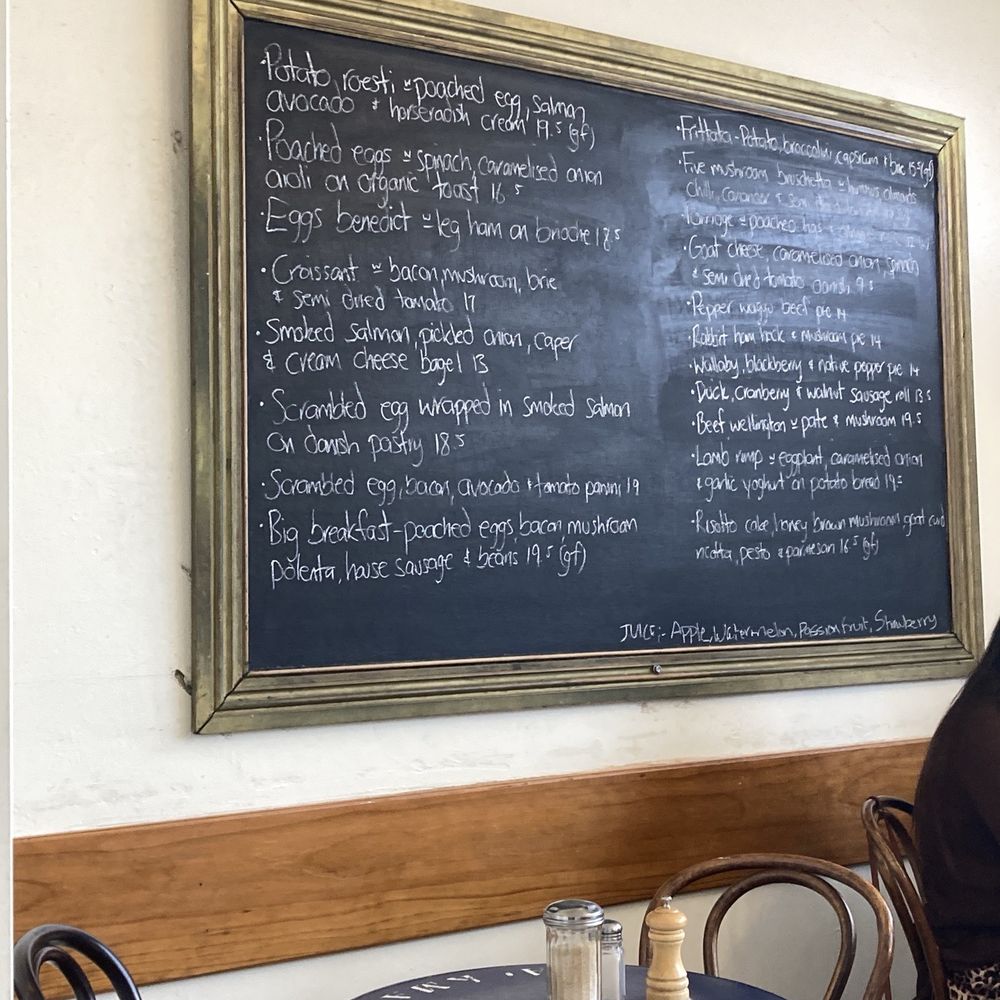 ·Potato, roesti w poached egg, salmon
avocado & horseradish cream 19.5 (gf)
·Poached eggs w spinach, caramelised onion
aioli on organic toast 16.5
·Eggs benedict w leg ham on brioche 18.5
·Croissant w bacon, mushroom, brie
& semi dried tomato 17
·Smoked salmon, pickled onion, caper
& cream cheese bagel 13
·Scrambled egg wrapped in smoked salmon
on danish pastry 18.5
·Scrambled egg, bacon, avocado & tomato panini 19
·Big breakfast-poached eggs, bacon, mushroom
polenta, house sausage & beans 19.5 (gf)
·Frittata-Potato, broccolini, capsicum & brie 15.5 (gf)
·Five mushroom bruschetta w hummus, almonds
chilli, coriander & semi
·Porridge w poached
·Goat cheese, caramelised onion, spinach
& semi dried tomato danish 9.5
·Pepper wagyu beef pie 14
·Rabbit ham hock & mushroom pie 14
·Wallaby, blackberry & native pepper pie 14
·Duck, cranberry & walnut sausage roll 13.5
·Beef wellington w pate & mushroom 19.5
·Lamb rump w eggplant, caramelised onion
& garlic yoghurt on potato bread 19.5
·Risotto cake, honey brown mushroom, goat curd
ricotta, pesto & parmesan 16.5 (gf)
JUICE:- Apple, Watermelon, Passionfruit, Strawberry